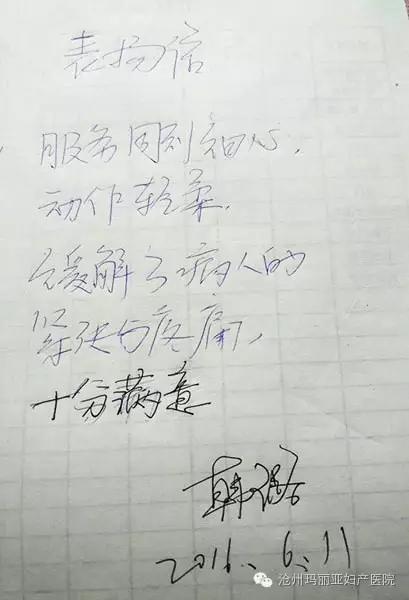 表扬信
服务周到知心,
动作轻柔,
缓解了病人的
紧张与疼痛,
十分满意
韩
2016.6.11
沧州玛丽亚妇产医院